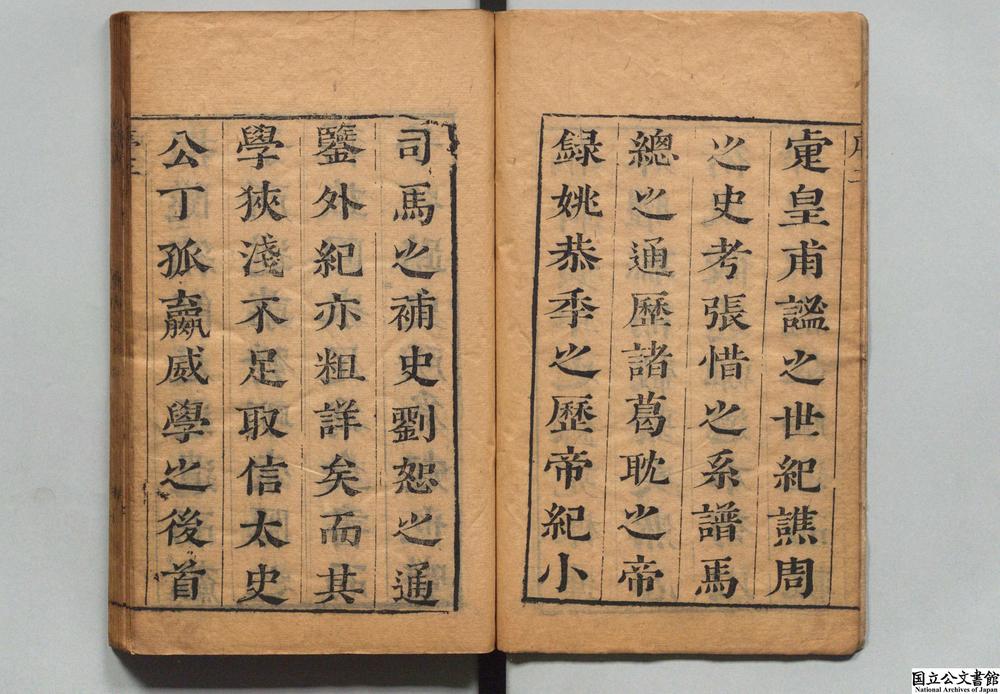 序二
疐皇甫謐之世紀譙周
之史考張愔之系譜馬
總之通歷諸葛耽之帝
録姚恭季之歷帝紀小
司馬之補史劉恕之通
鑒外紀亦粗詳矣而其
學狹淺不足取信太史
公丁孤嬴威學之後首
国立公文書館
National Archives of Japan